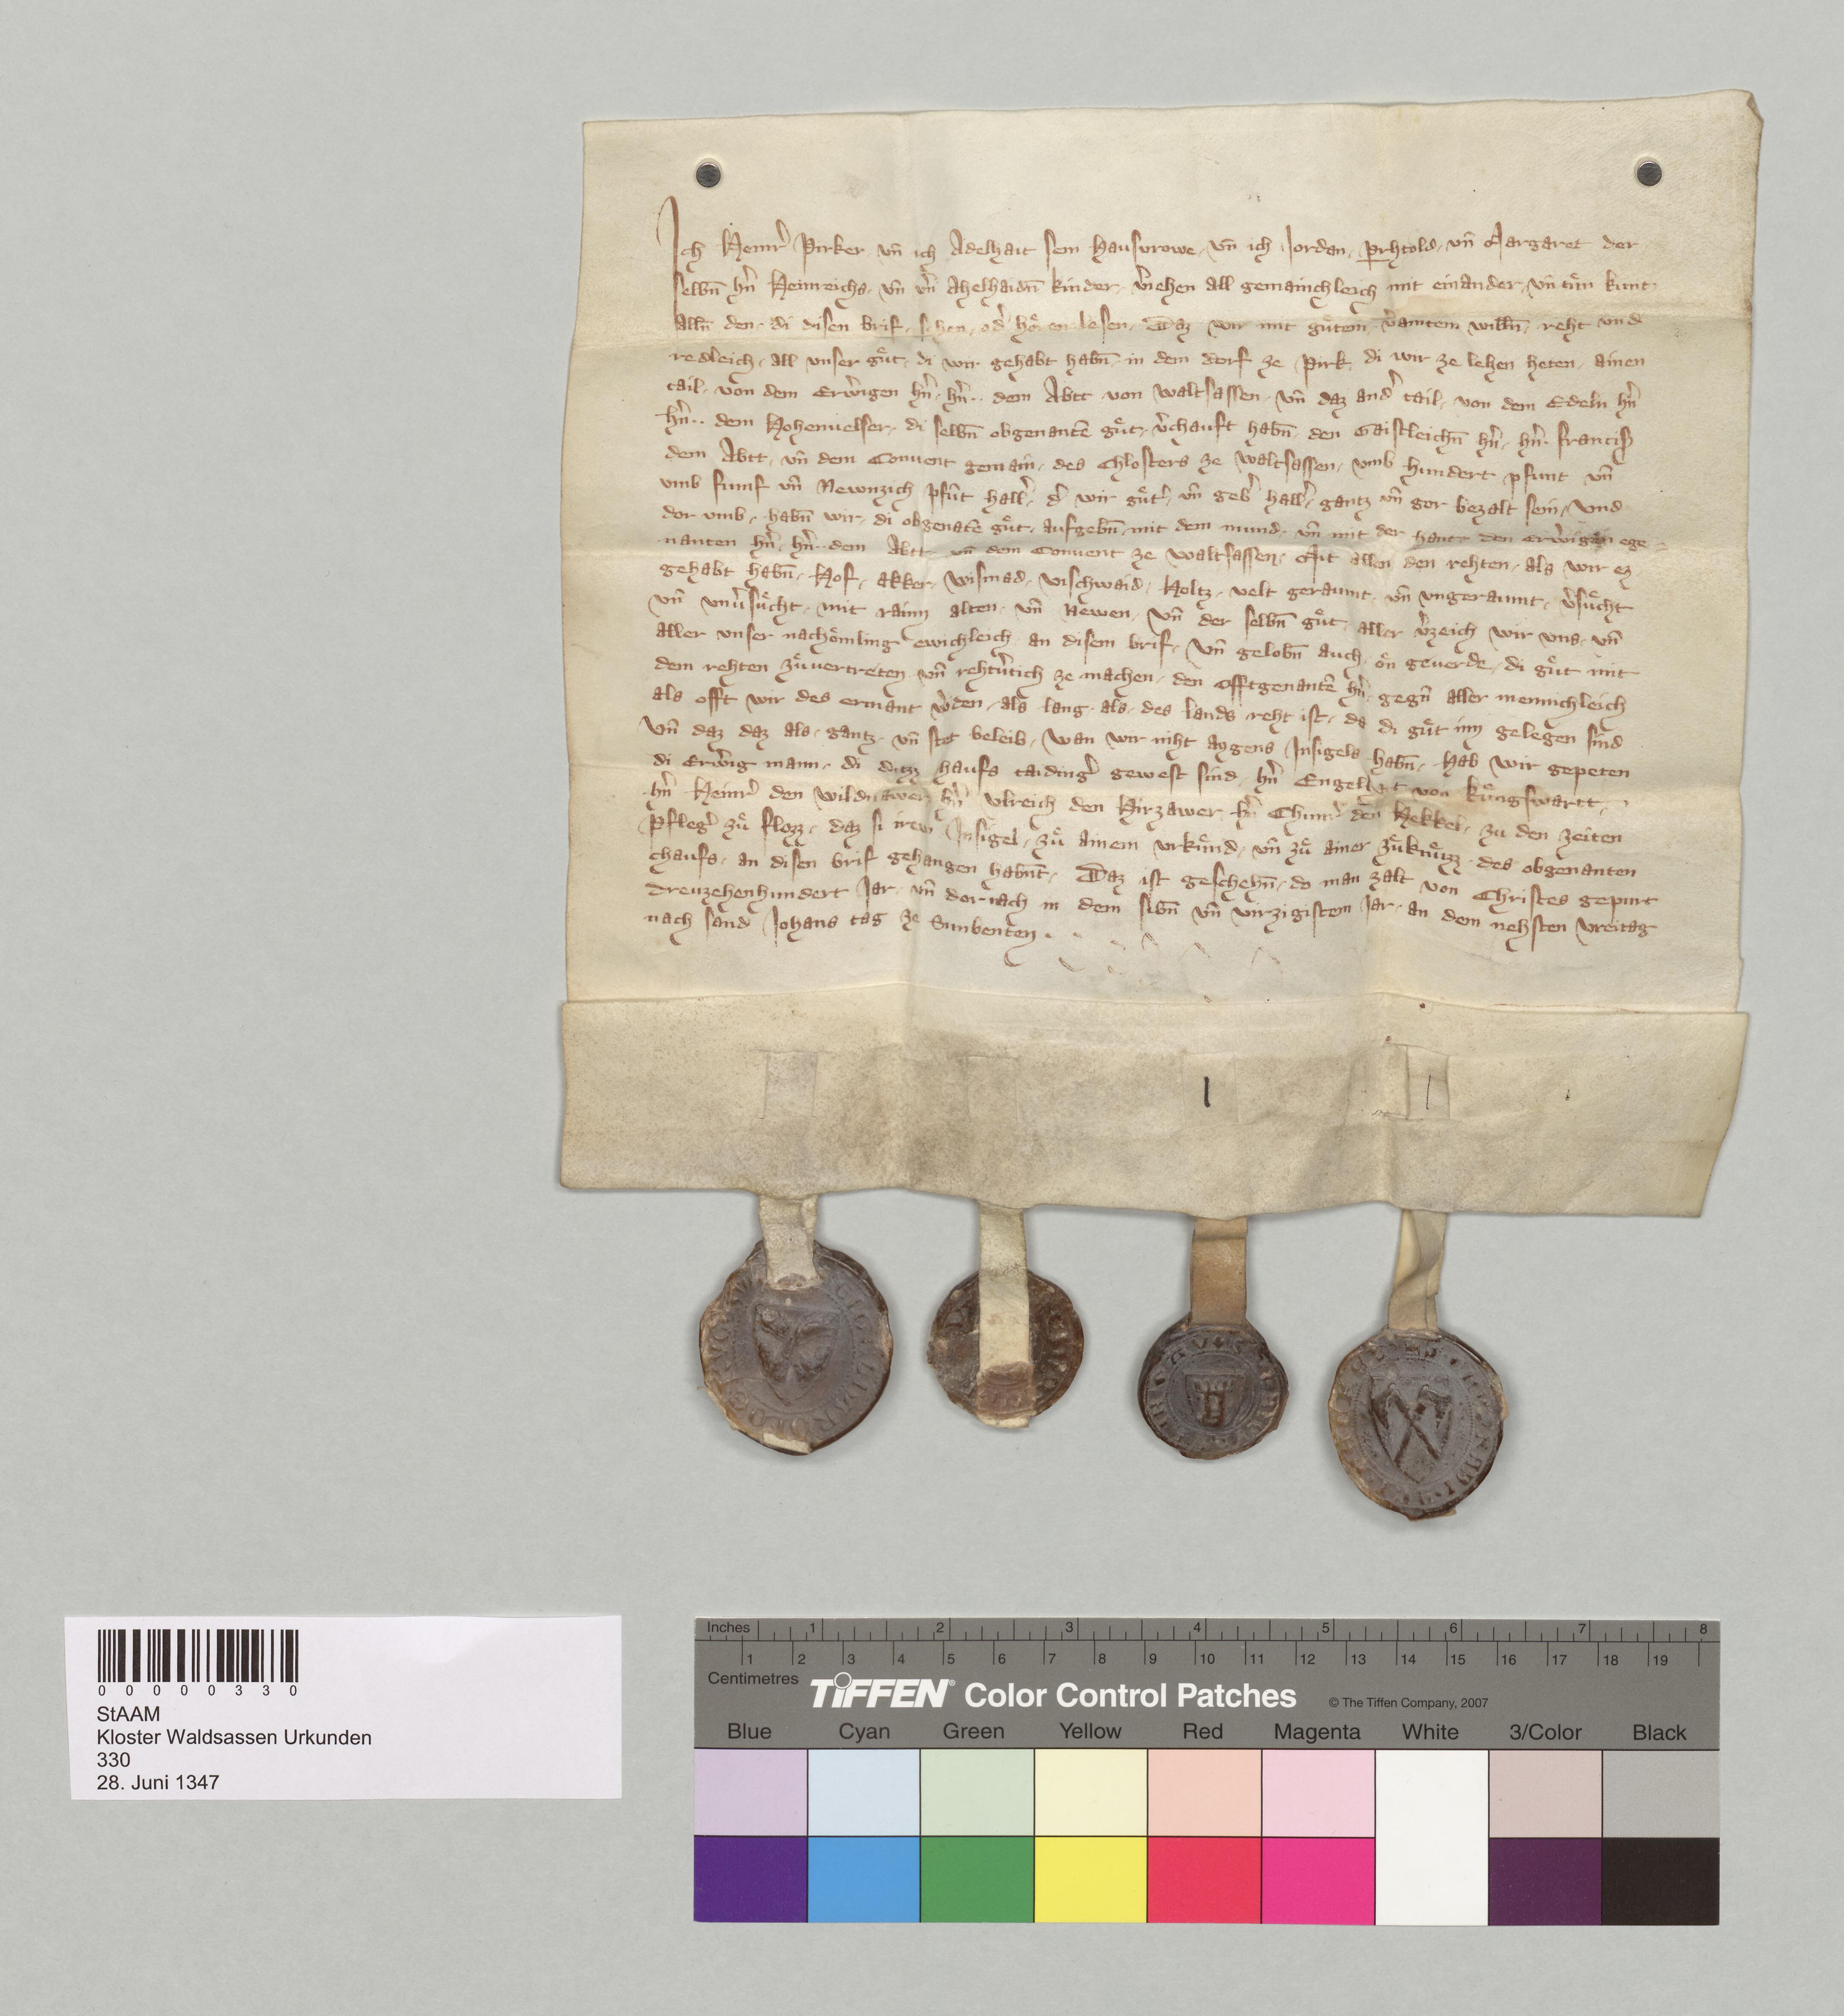 Ich Heinr̄ Pirker vn̄ ich Adelhait sein Hausvrowe, vn̄ ich Jordan, Prhtold, vn̄ Margaret der
selbn̄ hn̄ Heinreichs, vn̄ vn̄ Ahelhaidn̄ kinder, v̄iehen all gemainchleich mit einander, vn̄ tuͤn kunt,
Alln̄ den, di disen brif, sehen, od̄ hoͤren lesen, Daz wir mit guͤtem, v̄aintem willn̄, reht vnd
redleich, all vnser guͤt, di wir gehabt habn̄, in dem dorf ze Pirk, di wir ze lehen heten, ainen
tail, von dem Erẇigen hn̄, hn̄.. dem Abtt von Waltsassen, vn̄ daz and̄ tail, von dem Edeln hn̄
hn̄.. dem Hohenuelser, di selbn̄ obgenantē guͤt, v̄chauft habn̄, den Gaistleichn̄ hn̄, hn̄. francisz
dem Abtt, vn̄ dem Conuent gemain, des Chlosters ze Waltsassen, vmb hundert pfunt vn̄
vmb fumf vn̄ Newnzich pfūt hall̄, d̄ wir guͤt̄, vn̄ geb̄ hall̄, gantz vn̄ gor bezalt sein, Vnd
dor vmb, habn̄ wir, di obgenatē guͤt, aufgebn̄, mit dem mund, vn̄ mit der hant, den Erẇigen ege=
nanten hn̄, hn̄.. dem Abtt vn̄ dem Conuent ze Waltsassen, Mit allen den rehten, als wir ez
gehabt habn̄, Hof, akker, wismad, vischwaid, Holtz, velt geraumt, vn̄ vngeraumt, v̄suͤcht
vn̄ vnv̄suͤcht, mit rainn alten, vn̄ Newen, Vn̄ der selbn̄ guͤt aller v̄zeich wir vns, vn̄
aller vnser nachoͤmling ewichleich an disem brif, Vn̄ gelobn̄ auch, oͤn geuerde, di guͤt mit
dem rehten zuͤuertreten vn̄ rehtv̄tich ze machen, den Offtgenantē hn̄, gegn̄ aller mennichleich
als offt wir des ermant ẇden, als lang als, des lands reht ist, do di guͤt inn gelegen sind
Vn̄ daz daz als, gantz, vn̄ stet beleib, Wan wir niht aygens Insigels habn̄, Hab wir gepeten
di Erẇig mann, di ditzz kaufs taidinḡ gewest sind, hn̄ Engelhart von kuͤngswartt,
hn̄ Heinr̄ den Wildnawer, hn̄ Vlreich den Hirzawer hn̄ Chunr̄ den Hekkel, zu den zeiten
Pfleḡ zuͤ flozz, daz si irew Insigel, zuͤ ainem vrkuͤnd, vn̄ zuͤ ainer zuͤknuͤzz, des obgenanten
chaufs, an disen brif gehangen habnt, Daz ist geschehn̄, do man zalt von Christes gepurt
dreuzehenhundert Jar, vn̄ dornach in dem sibn̄ vn̄ virzigistem Jar, an dem nehsten Vreitag
nach sand Johans tag ze Sunbenten.
0 0 0 0 0 3 3 0
StAAM
Kloster Waldsassen Urkunden
330
28. Juni 1347
Inches 1 2 3 4 5 6 7 8
1 2 3 4 5 6 7 8 9 10 11 12 13 14 15 16 17 18 19
Centimetres
TIFFEN® Color Control Patches © The Tiffen Company, 2007
Blue Cyan Green Yellow Red Magenta White 3/Color Black